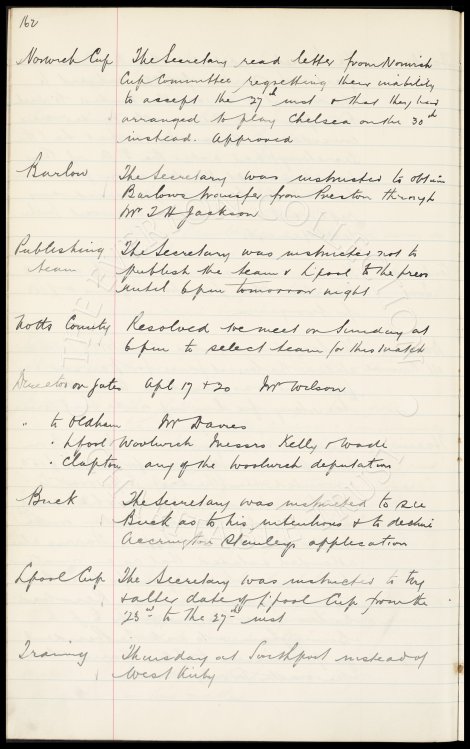 162
Norwich Cup The Secretary read letter from Norwich
Cup Committee regretting their inability
to accept the 27th inst & that they had
arranged to play Chelsea on the 30th
instead. Approved
Barlow The Secretary was instructed to obtain
Barlows transfer from Preston through
Mr T H Jackson
Publishing The Secretary was instructed not to
team publish the team v Lpool to the press
until 6pm tomorrow night
Notts County Resolved we meet on Sunday at
6pm to select team for this match
Director on Gates Apl 17 & 20 Mr Wilson
" to Oldham Mr Davies
" Lpool Woolwich Messrs Kelly & Wade
" Clapton any of the Woolwich deputation
Buck The Secretary was instructed to see
Buck as to his intentions & to decline
Accrington Stanleys application
Lpool Cup The Secretary was instructed to try
& alter date of L'pool Cup from the
23rd to the 27th inst
Training Thursday at Southport instead of
West Kirby